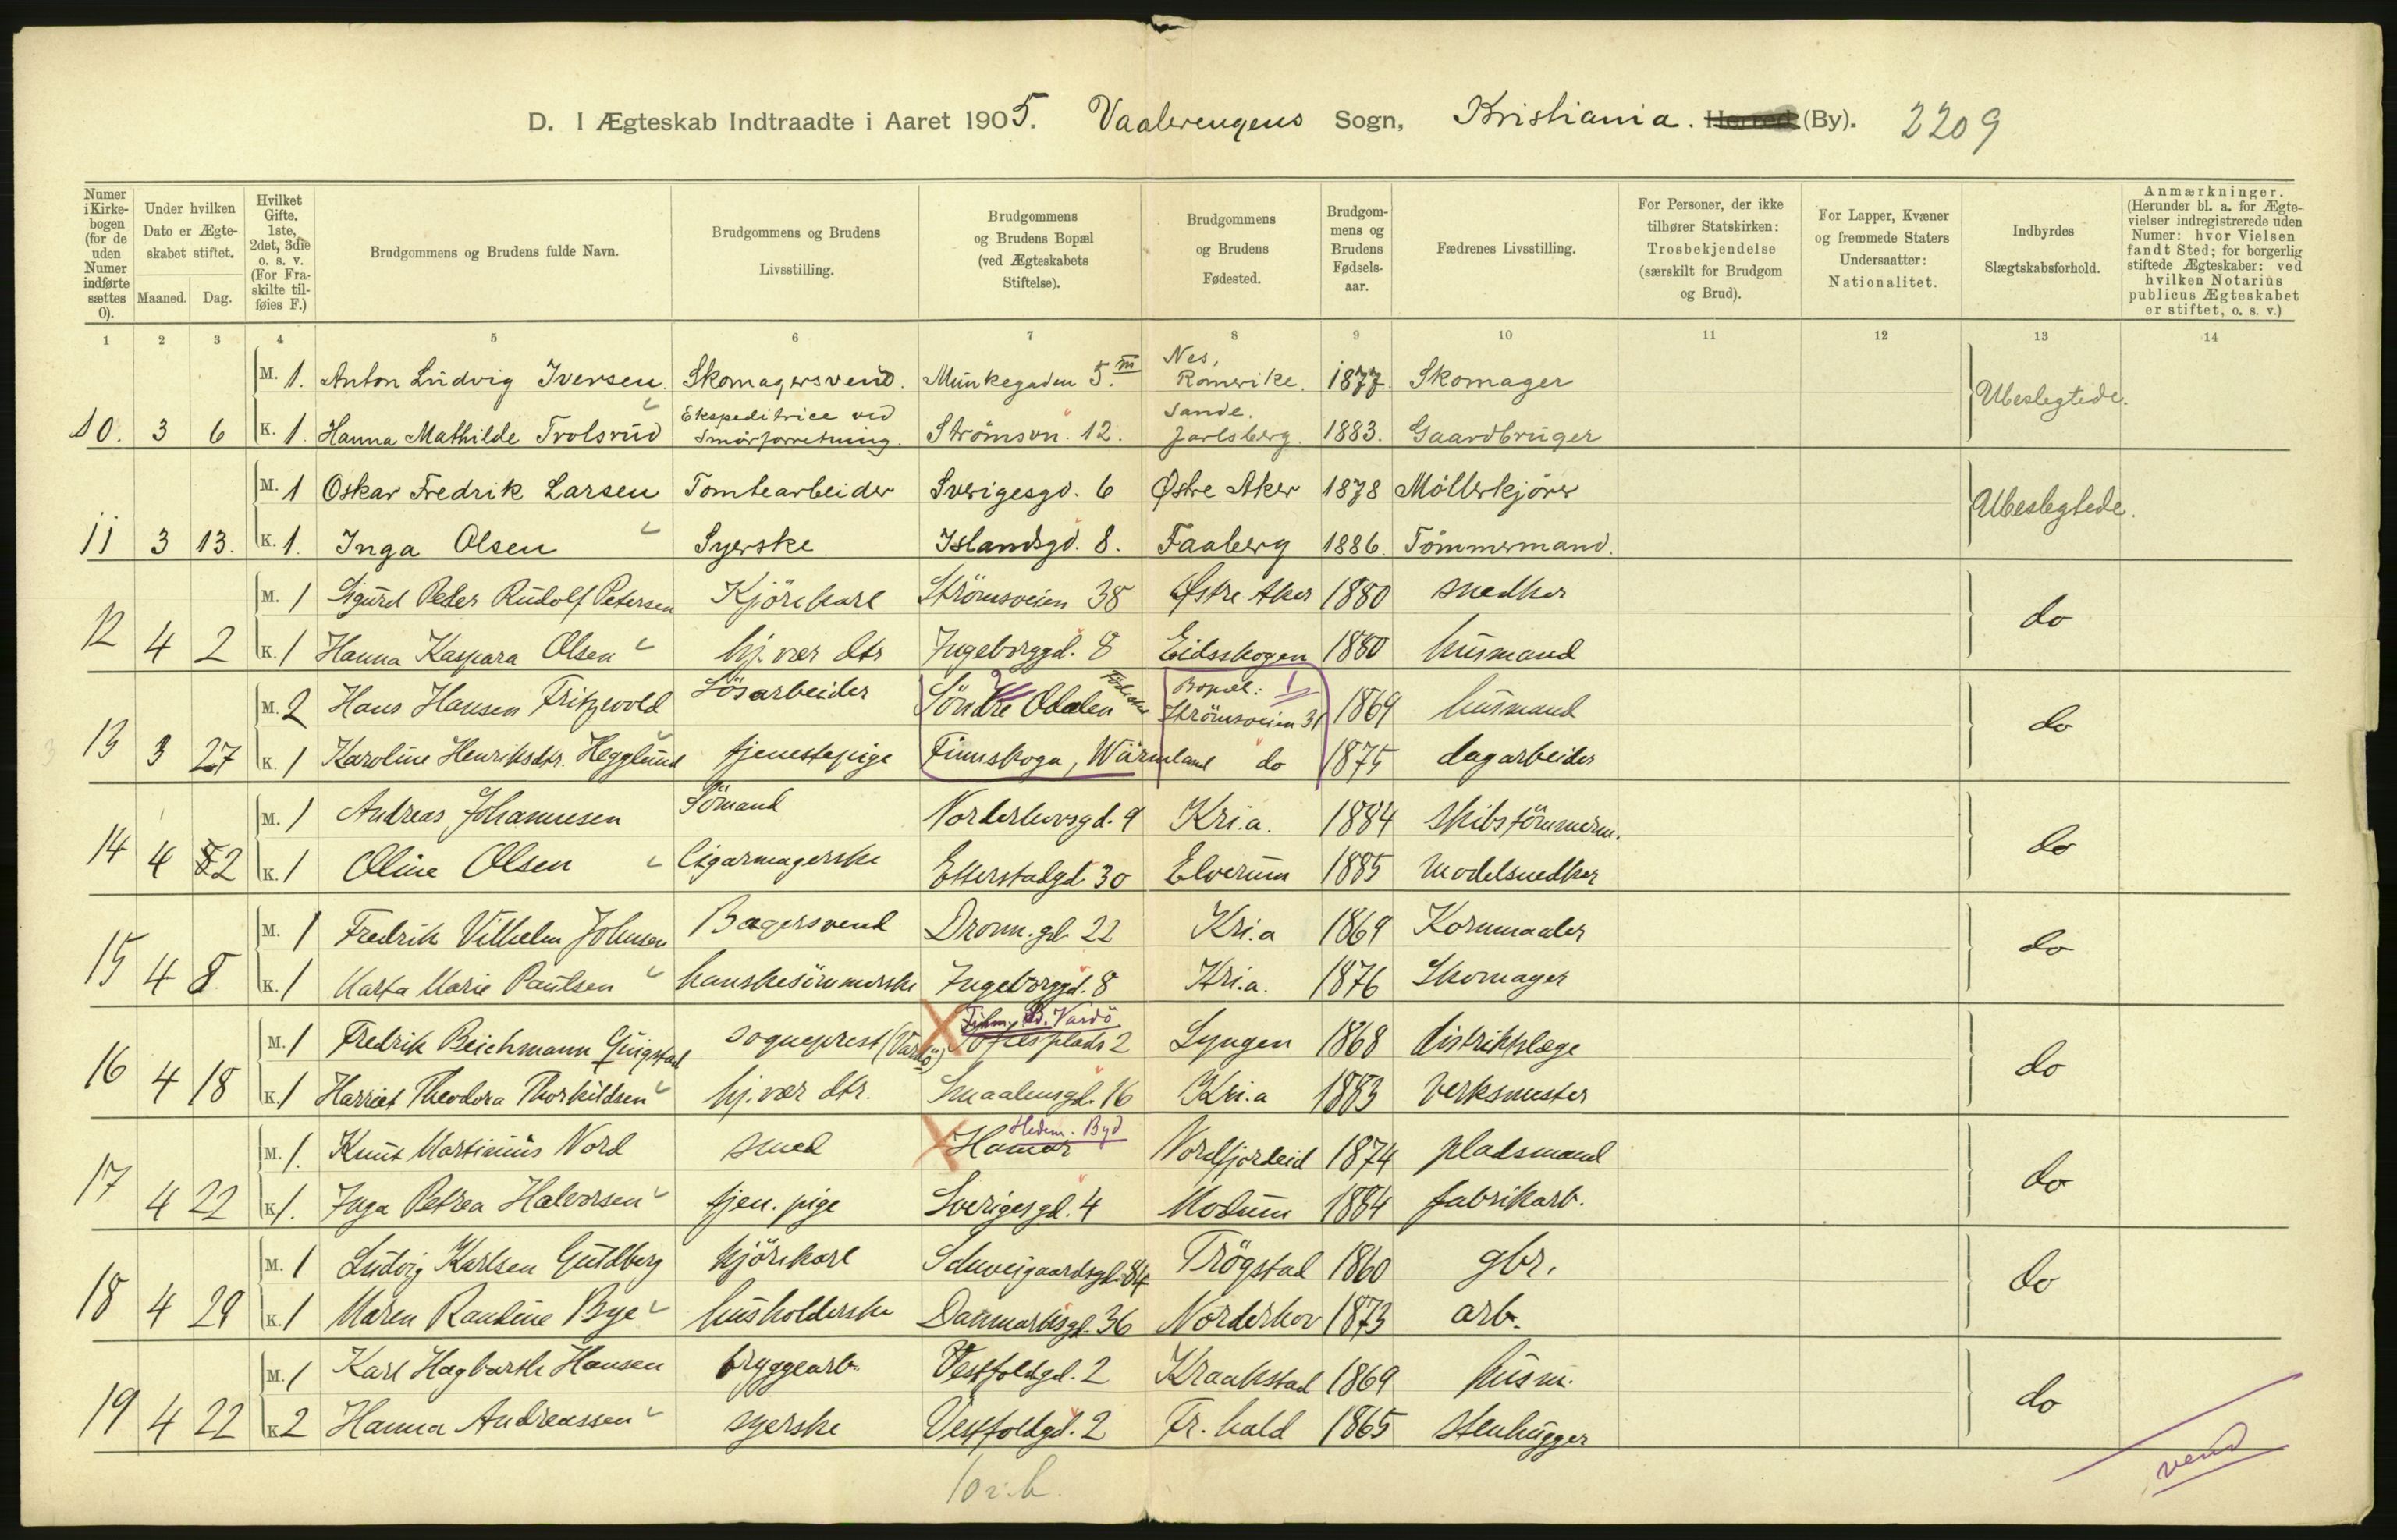 D. I Ægteskab Indtraadte i Aaret 1905. Vaalerengens Sogn, Kristiania. Herred (By). 2209
Numer i Kirkebogen (for de uden Numer indførte sættes 0).
Under hvilken Dato er Ægteskabet stiftet.
Maaned. Dag.
Hvilket Gifte. 1ste, 2det, 3die o. s. v. (For Fraskilte tilføies F.)
Brudgommens og Brudens fulde Navn.
Brudgommens og Brudens Livsstilling.
Brudgommens og Brudens Bopæl (ved Ægteskabets Stiftelse).
Brudgommens og Brudens Fødested.
Brudgommens og Brudens Fødselsaar.
Fædrenes Livsstilling.
For Personer, der ikke tilhører Statskirken: Trosbekjendelse (særskilt for Brudgom og Brud).
For Lapper, Kvæner og fremmede Staters Undersaatter: Nationalitet.
Indbyrdes Slægtskabsforhold.
Anmærkninger. (Herunder bl. a. for Ægtevielser indregistrerede uden Numer: hvor Vielsen fandt Sted; for borgerlig stiftede Ægteskaber: ved hvilken Notarius publicus Ægteskabet er stiftet, o. s. v.)
1 2 3 4 5 6 7 8 9 10 11 12 13 14
M. 1. Anton Ludvig Iversen. Skomagersvend. Munkegaden 5. III Nes, Romerike. 1877. Skomager Ubeslegtede.
10. 3 6 K. 1. Hanna Mathilde Trolsrud Ekspeditrice ved Smörforretning. Strömsvn. 12. Sande. Jarlsberg. 1883. Gaardbruger
M. 1 Oskar Fredrik Larsen Tomtearbeider Sverigesgd. 6 Østre Aker 1878 Möllerkjörer Ubeslegtede.
11 3 13. K. 1. Inga Olsen Syerske Islandsgd. 8. Faaberg 1886. Tömmermand.
M. 1 Sigurd Peder Rudolf Petersen Kjörekarl Strömsveien 38 Østre Aker 1880 snedker do
12 4 2 K. 1 Hanna Kaspara Olsen hj. vær dtr Ingeborggd. 8 Eidsskogen 1880 husmand
M. 2 Hans Hansen Fritzvold Lösarbeider Söndre Odalen Födested Bopæl: Strömsveien 31 1869 husmand do
13 3 27 K. 1 Karoline Henriksdtr. Hegglund tjenestepige Finnskoga, Wärmland do 1875 dagarbeider
M. 1 Andreas Johannesen Sömand Norderhovsgd. 9 Kri.a. 1884 skibstömmerm. do
14 4 2 K. 1 Oline Olsen Cigarmagerske Etterstadgd 30 Elverum 1885 modelsnedker
M. 1 Fredrik Vilhelm Johnsen Bagersvend Dronn. gd. 22 Kri.a 1869 Kornmaaler do
15 4 8 K. 1 Marta Marie Paulsen hanskesömmerske Ingeborggd. 8 Kri.a. 1876 Skomager
M. 1 Fredrik Beichmann Quigstad sogneprest (Vardö) Finm. B. Vardö Toftesplads 2 Lyngen 1868 distriktslæge do
16 4 18 K. 1 Harriet Theodora Thorkildsen hj. vær dtr. Smaalensgd. 16 Kri.a 1883 Verksmester
M. 1. Knut Martinius Nord smed Hedem. Byd Hamar Nordfjordeid 1874 pladsmand do
17 4 22 K. 1. Inga Petrea Halvorsen tjen. pige Sverigesgd. 4 Modum 1884 fabrikarb.
M. 1 Ludvig Karlsen Guldberg kjörekarl Schweigaardsgd. 84 Trögstad 1860 gbr. do
18 4 29 K. 1 Maren Randine Bye husholderske Danmarksgd. 36 Norderhov 1873 arb.
M. 1 Karl Hagbarth Hansen bryggearb. Vestfoldgd. 2 Kraakstad 1869 husm. do
19 4 22 K. 2 Hanna Andreassen syerske Vestfoldgd. 2 Fr. hald 1865 stenhugger
vend